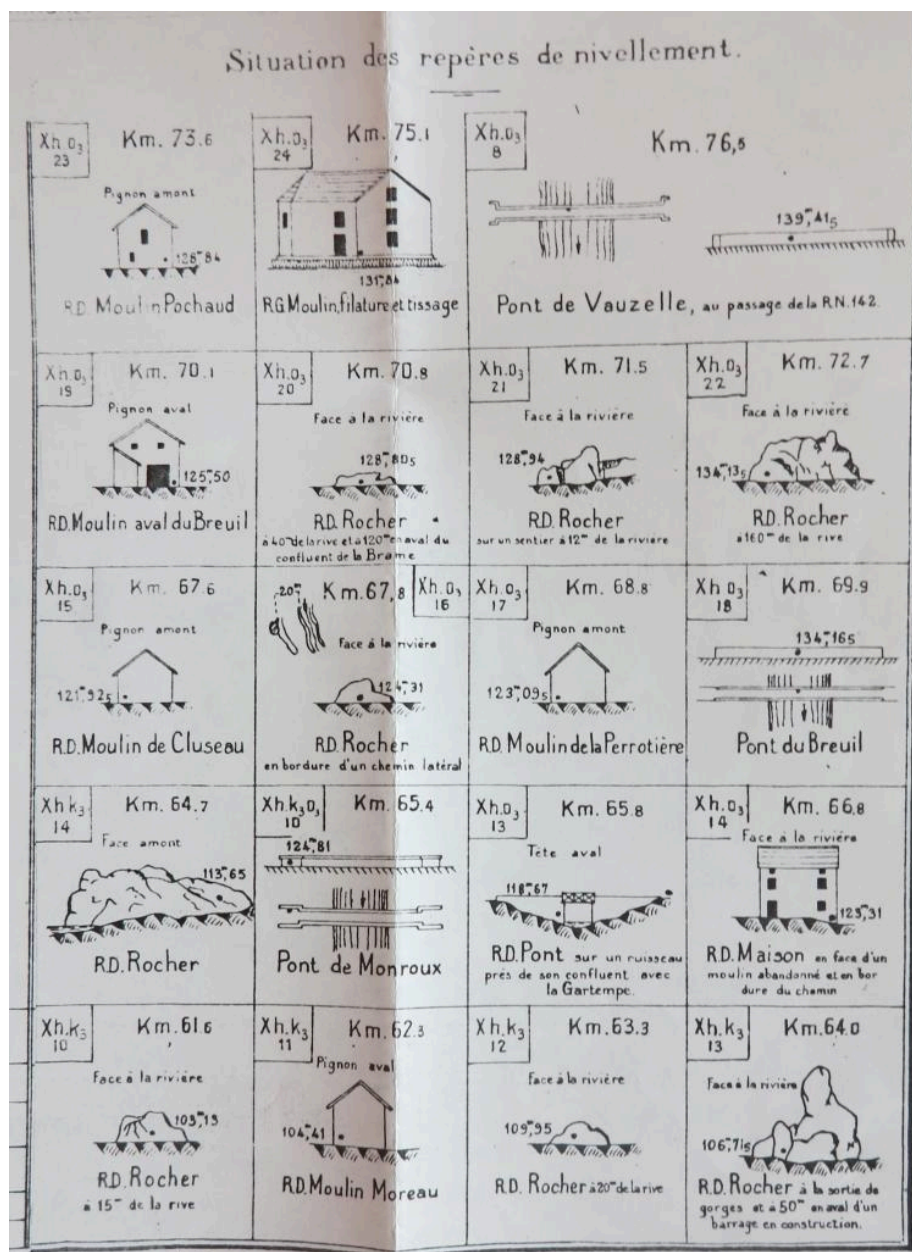 Situation des repères de nivellement.
Xh.O₃
23
Km. 73.6
Pignon amont
128,84
R.D. Moulin Pochaud
Xh.O₃
24
Km. 75.1
131,84
R.G Moulin, filature et tissage
Xh.O₃
8
Km. 76,5
139,ᵐ41₅
Pont de Vauzelle, au passage de la R.N. 142.
Xh.O₃
19
Km. 70.1
Pignon aval
125,ᵐ50
R.D. Moulin aval du Breuil
Xh.O₃
20
Km. 70.8
Face à la rivière
128,ᵐ80₅
R.D. Rocher
à 40ᵐ de la rive et à 120ᵐ en aval du
confluent de la Brame
Xh.O₃
21
Km. 71.5
Face à la rivière
128,ᵐ94
R.D. Rocher
sur un sentier à 12ᵐ de la rivière
Xh.O₃
22
Km. 72.7
Face à la rivière
134,ᵐ13₅
R.D. Rocher
à 160ᵐ de la rive
Xh.O₃
15
Km. 67.6
Pignon amont
121,ᵐ92₅
R.D. Moulin de Cluseau
20ᵐ
Km. 67,8
Xh.O₃
16
Face à la rivière
124,ᵐ31
R.D. Rocher
en bordure d'un chemin latéral
Xh.O₃
17
Km. 68.8
Pignon amont
123,ᵐ09₅
R.D. Moulin de la Perrotière
Xh.O₃
18
Km. 69.9
134,ᵐ16₅
Pont du Breuil
Xh k₃
14
Km. 64.7
Face amont
113,ᵐ65
R.D. Rocher
Xh.k₃O₃
10
Km. 65.4
124,ᵐ81
Pont de Monroux
Xh.O₃
13
Km. 65.8
Tête aval
118,ᵐ67
R.D. Pont sur un ruisseau
près de son confluent avec
la Gartempe.
Xh.O₃
14
Km. 66.8
Face à la rivière
123,ᵐ31
R.D. Maison en face d'un
moulin abandonné et en bor
dure du chemin
Xh.k₃
10
Km. 61.6
Face à la rivière
103,ᵐ13
R.D. Rocher
à 15ᵐ de la rive
Xh.k₃
11
Km. 62.3
Pignon aval
104,ᵐ41
R.D. Moulin Moreau
Xh.k₃
12
Km. 63.3
Face à la rivière
109,ᵐ95
R.D. Rocher à 20ᵐ de la rive
Xh.k₃
13
Km. 64.0
Face à la rivière
106,ᵐ71₅
R.D. Rocher à la sortie de
gorges et à 50ᵐ en aval d'un
barrage en construction.